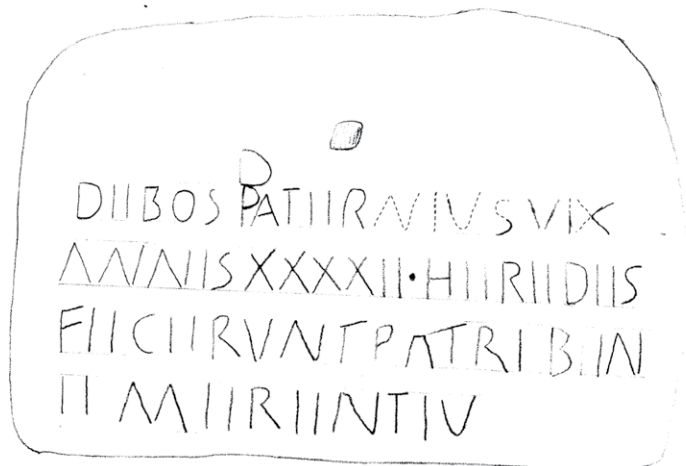 DIIBOS PATIIRNIVS VIX
ANNIS XXXXII·HIIRIIDIIS
FIICIIRVNT PATRI BIIN
II MIIRIINTIV